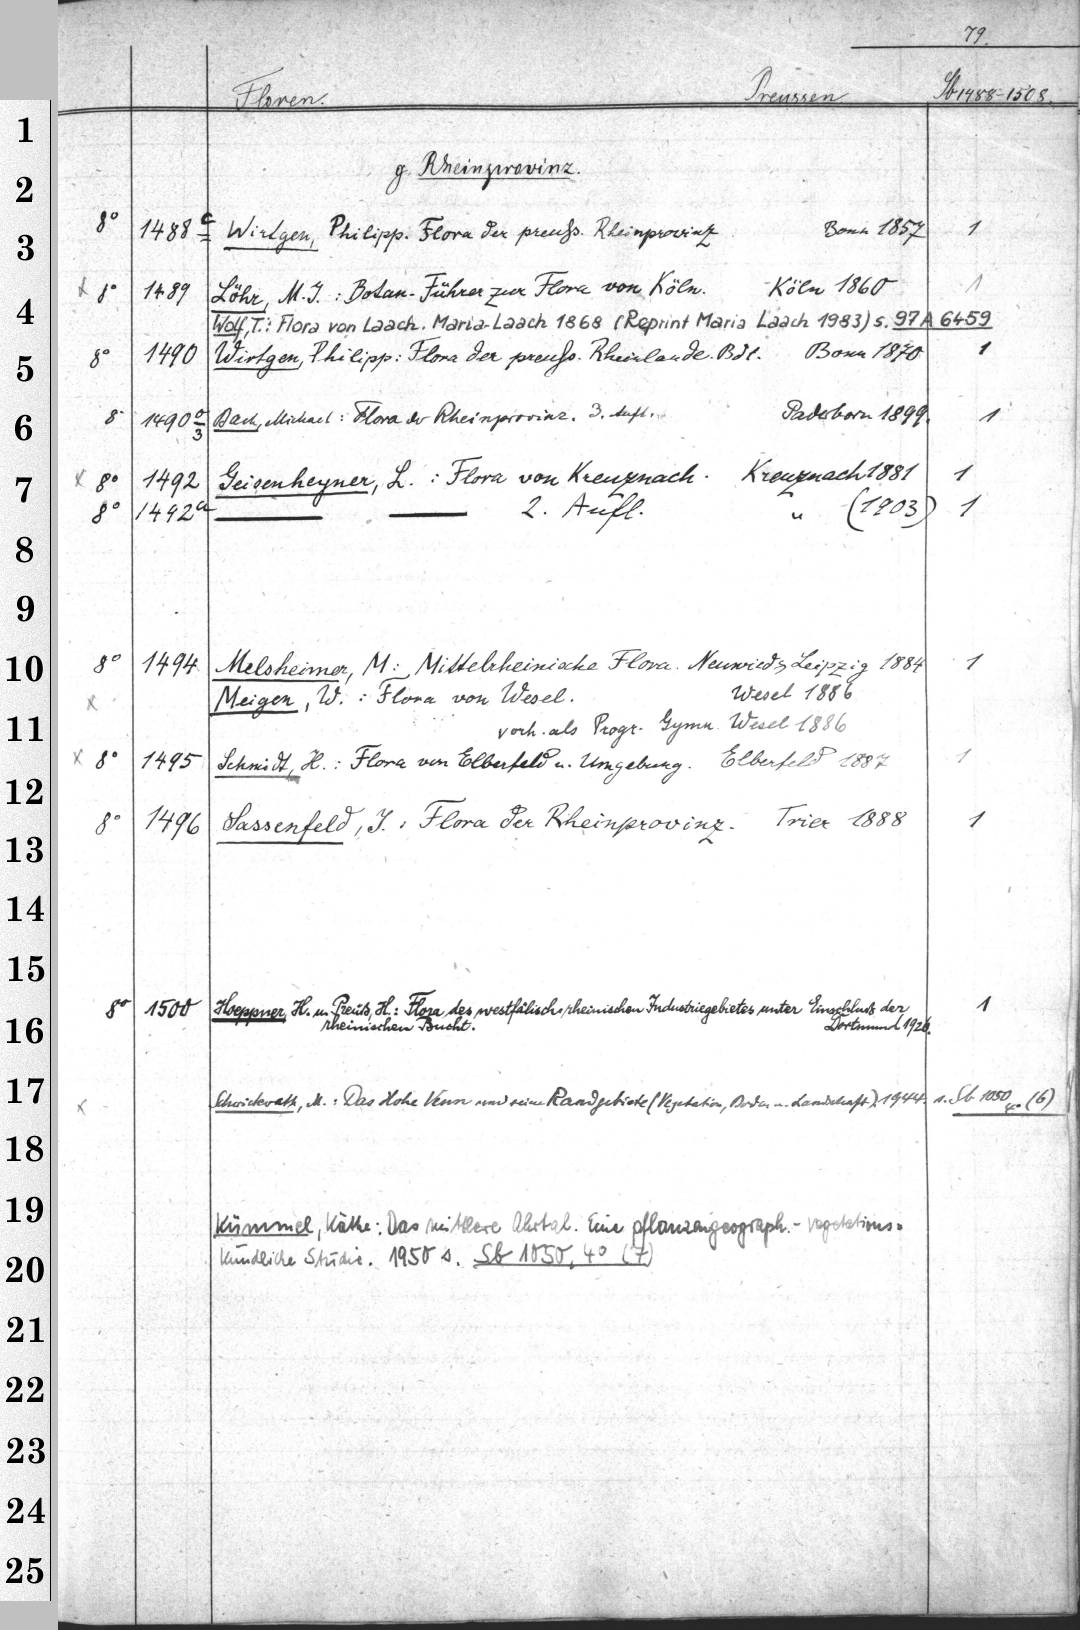 79.
Floren. Preussen Sb 1488-1508.
1
g. Rheinprovinz.
2
8° 1488 c Wirtgen, Philipp. Flora der preuss. Rheinprovinz Bonn 1857 1
3
x 8° 1489 Löhr, M. J. : Botan. Führer zur Flora von Köln. Köln 1860 1
4 Wolf, T.: Flora von Laach. Maria-Laach 1868 (Reprint Maria Laach 1983) s. 97 A 6459
8° 1490 Wirtgen, Philipp: Flora der preuss. Rheinlande. Bd 1. Bonn 1870 1
5
8° 1490 a/3 Bach, Michael : Flora der Rheinprovinz. 3. Aufl. Paderborn 1899. 1
6
x 8° 1492 Geisenheyner, L. : Flora von Kreuznach. Kreuznach 1881 1
7
8° 1492 a — — 2. Aufl. " (1903) 1
8
9
10 8° 1494 Melsheimer, M: Mittelrheinische Flora. Neuwied & Leipzig 1884 1
x Meigen, W. : Flora von Wesel. Wesel 1886
11 vorh. als Progr. Gymn. Wesel 1886
x 8° 1495 Schmidt, H. : Flora von Elberfeld u. Umgebung. Elberfeld 1887 1
12
8° 1496 Sassenfeld, J. : Flora der Rheinprovinz. Trier 1888 1
13
14
15
8° 1500 Hoeppner, H. u. Preuß, H.: Flora des westfälisch-rheinischen Industriegebietes unter Einschluß der 1
16 rheinischen Bucht. Dortmund 1926.
17
x Schwickerath, M. : Das Hohe Venn und seine Randgebiete (Vegetation, Boden u. Landschaft). 1944. s. Sb 1050 4° (6)
18
19
Kümmel, Käthe: Das mittlere Ahrtal. Eine pflanzengeograph. - vegetations-
kundliche Studie. 1950 s. Sb 1050, 4° (7)
20
21
22
23
24
25